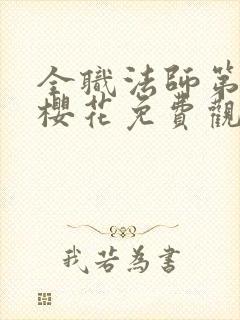 全職法師第
櫻花免費觀
我若為書